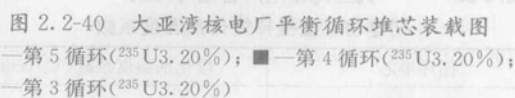 图 2.2-40 大亚湾核电厂平衡循环堆芯装载图
—第 5 循环(²³⁵U3.20%)；■—第 4 循环(²³⁵U3.20%)；
—第 3 循环(²³⁵U3.20%)